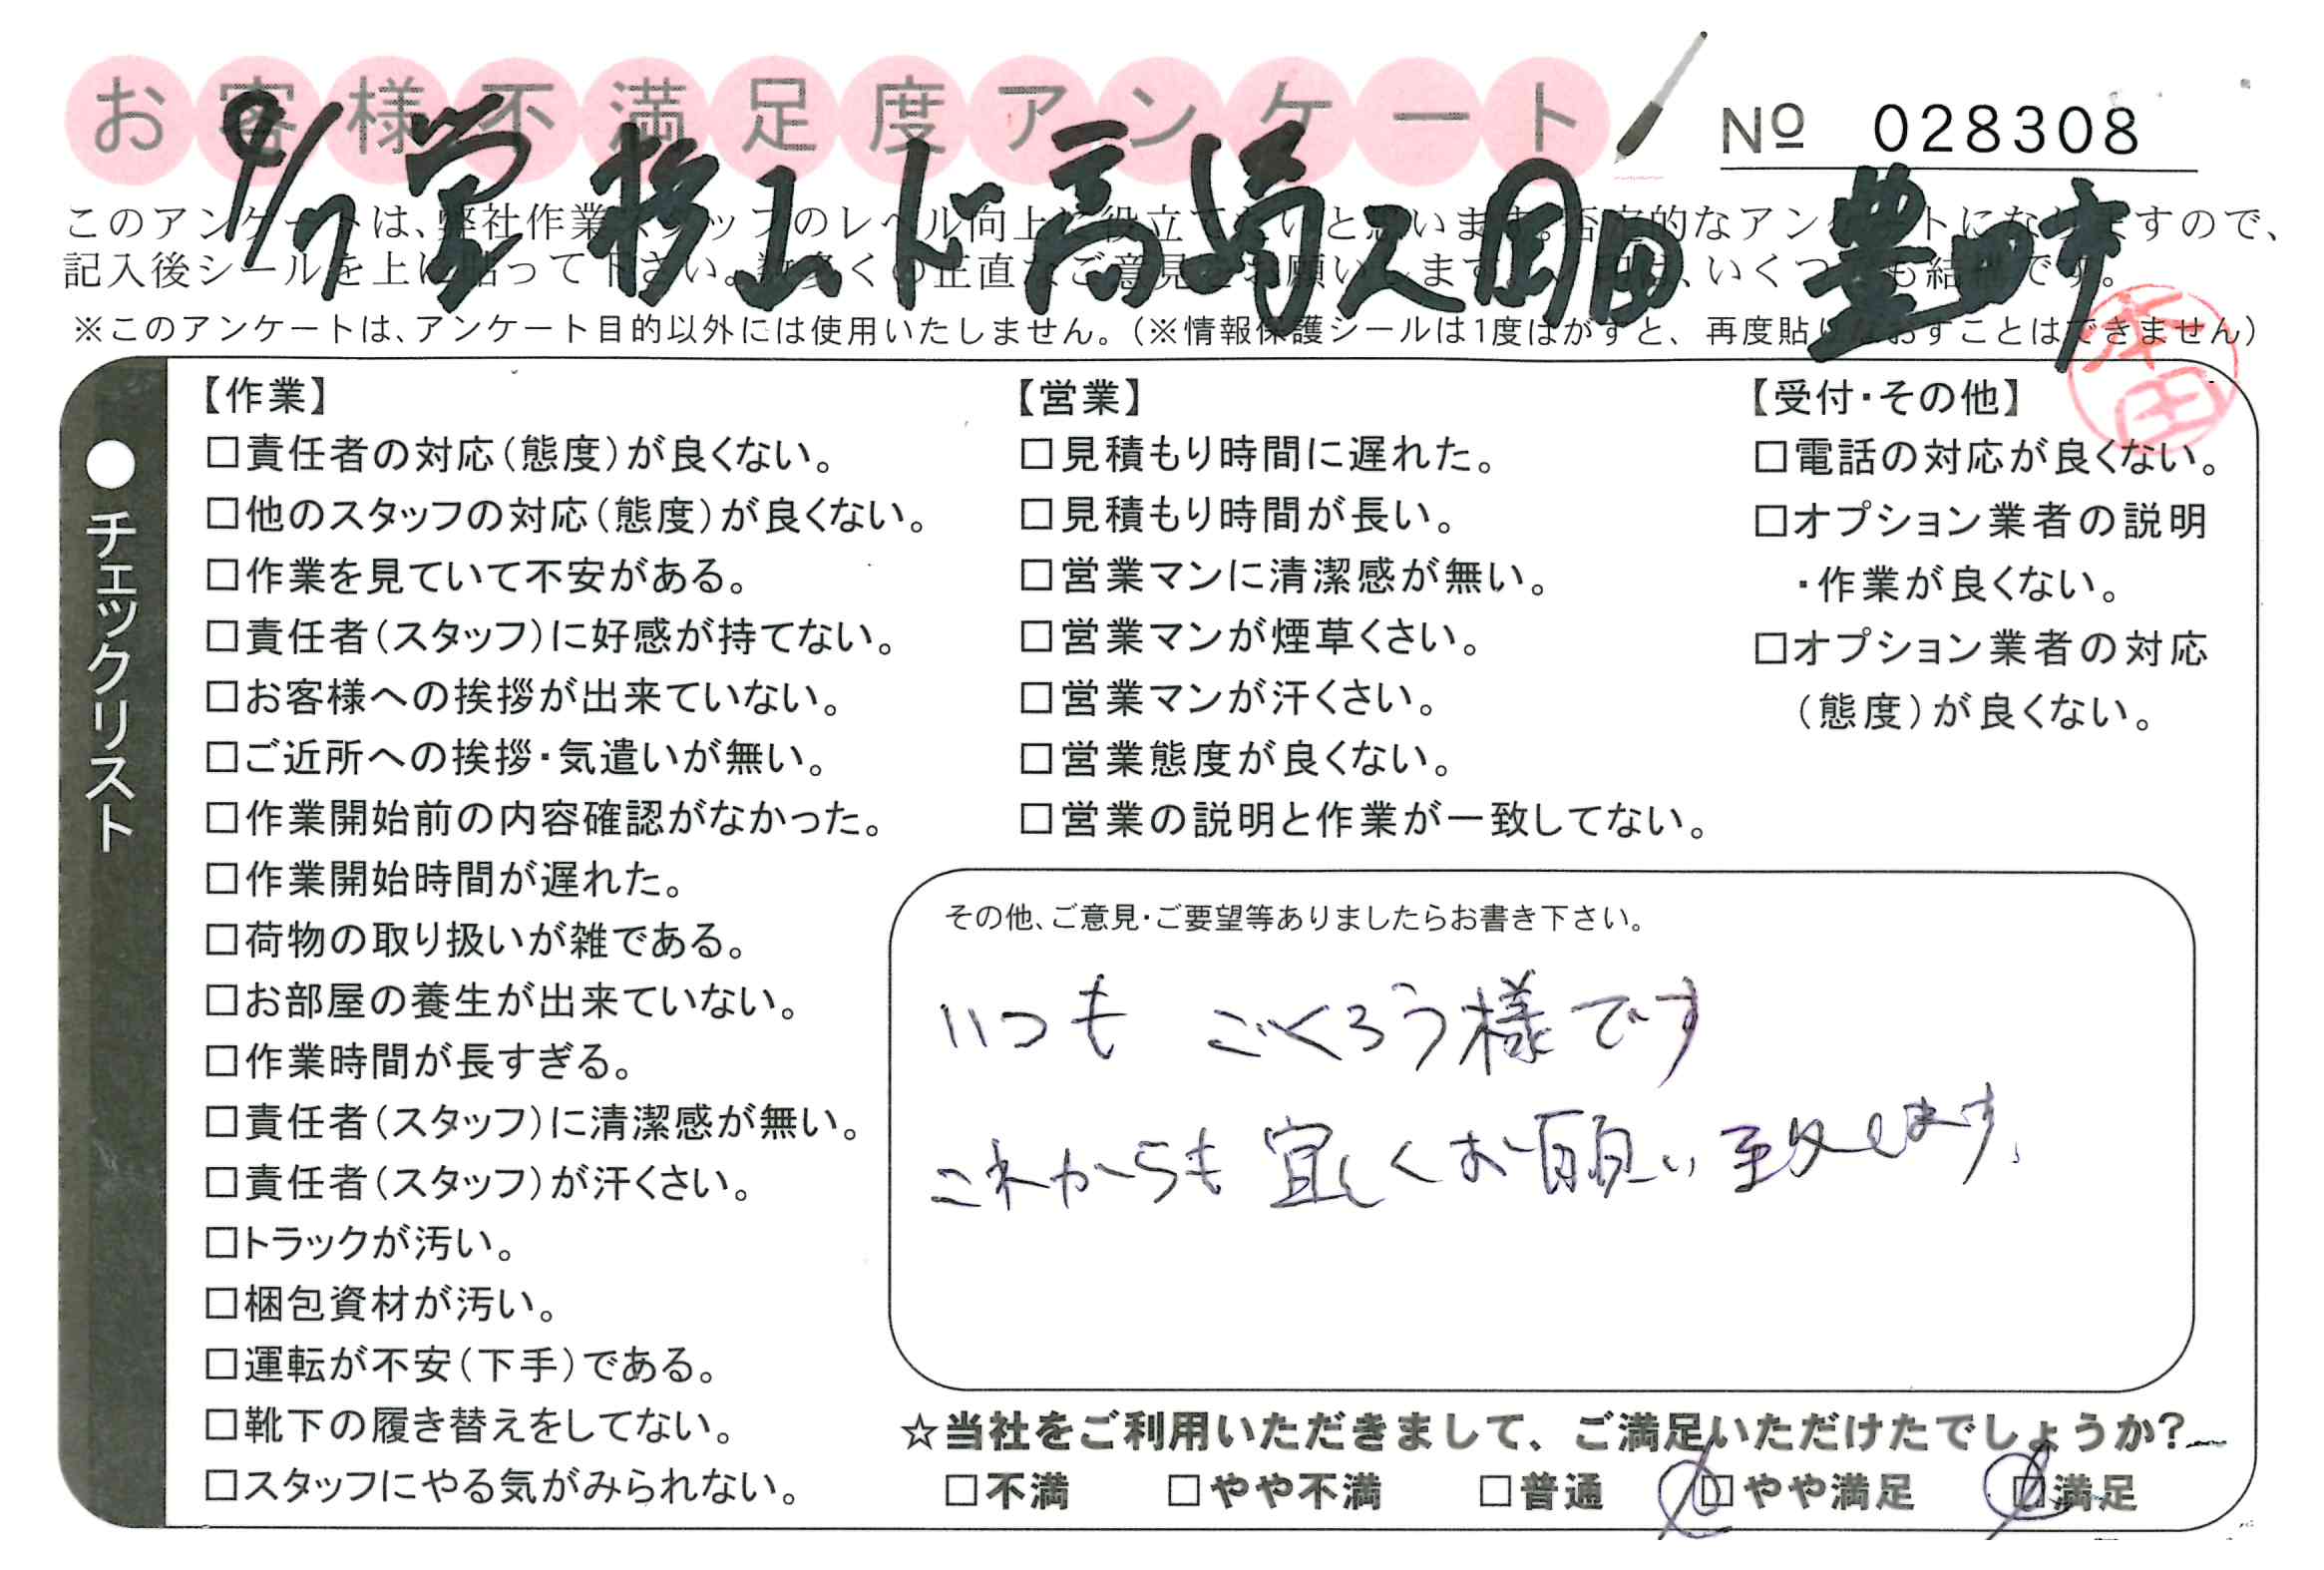 お客様不満足度アンケート
No 028308
9/7 営 杉山ド高嶋ス岡田 豊田市
このアンケートは、弊社作業スタッフのレベル向上に役立てたいと思います。否定的なアンケートになりますので、
記入後シールを上に貼って下さい。数多くの正直なご意見をお願いします。
※このアンケートは、アンケート目的以外には使用いたしません。(※情報保護シールは1度はがすと、再度貼りなおすことはできません)
本田
●チェックリスト
【作業】
□責任者の対応(態度)が良くない。
□他のスタッフの対応(態度)が良くない。
□作業を見ていて不安がある。
□責任者(スタッフ)に好感が持てない。
□お客様への挨拶が出来ていない。
□ご近所への挨拶・気遣いが無い。
□作業開始前の内容確認がなかった。
□作業開始時間が遅れた。
□荷物の取り扱いが雑である。
□お部屋の養生が出来ていない。
□作業時間が長すぎる。
□責任者(スタッフ)に清潔感が無い。
□責任者(スタッフ)が汗くさい。
□トラックが汚い。
□梱包資材が汚い。
□運転が不安(下手)である。
□靴下の履き替えをしてない。
□スタッフにやる気がみられない。
【営業】
□見積もり時間に遅れた。
□見積もり時間が長い。
□営業マンに清潔感が無い。
□営業マンが煙草くさい。
□営業マンが汗くさい。
□営業態度が良くない。
□営業の説明と作業が一致してない。
【受付・その他】
□電話の対応が良くない。
□オプション業者の説明
・作業が良くない。
□オプション業者の対応
(態度)が良くない。
その他、ご意見・ご要望等ありましたらお書き下さい。
いつも ごくろう様です
これからも 宜しくお願い致します。
☆当社をご利用いただきまして、ご満足いただけたでしょうか?
□不満 □やや不満 □普通 □やや満足 □満足